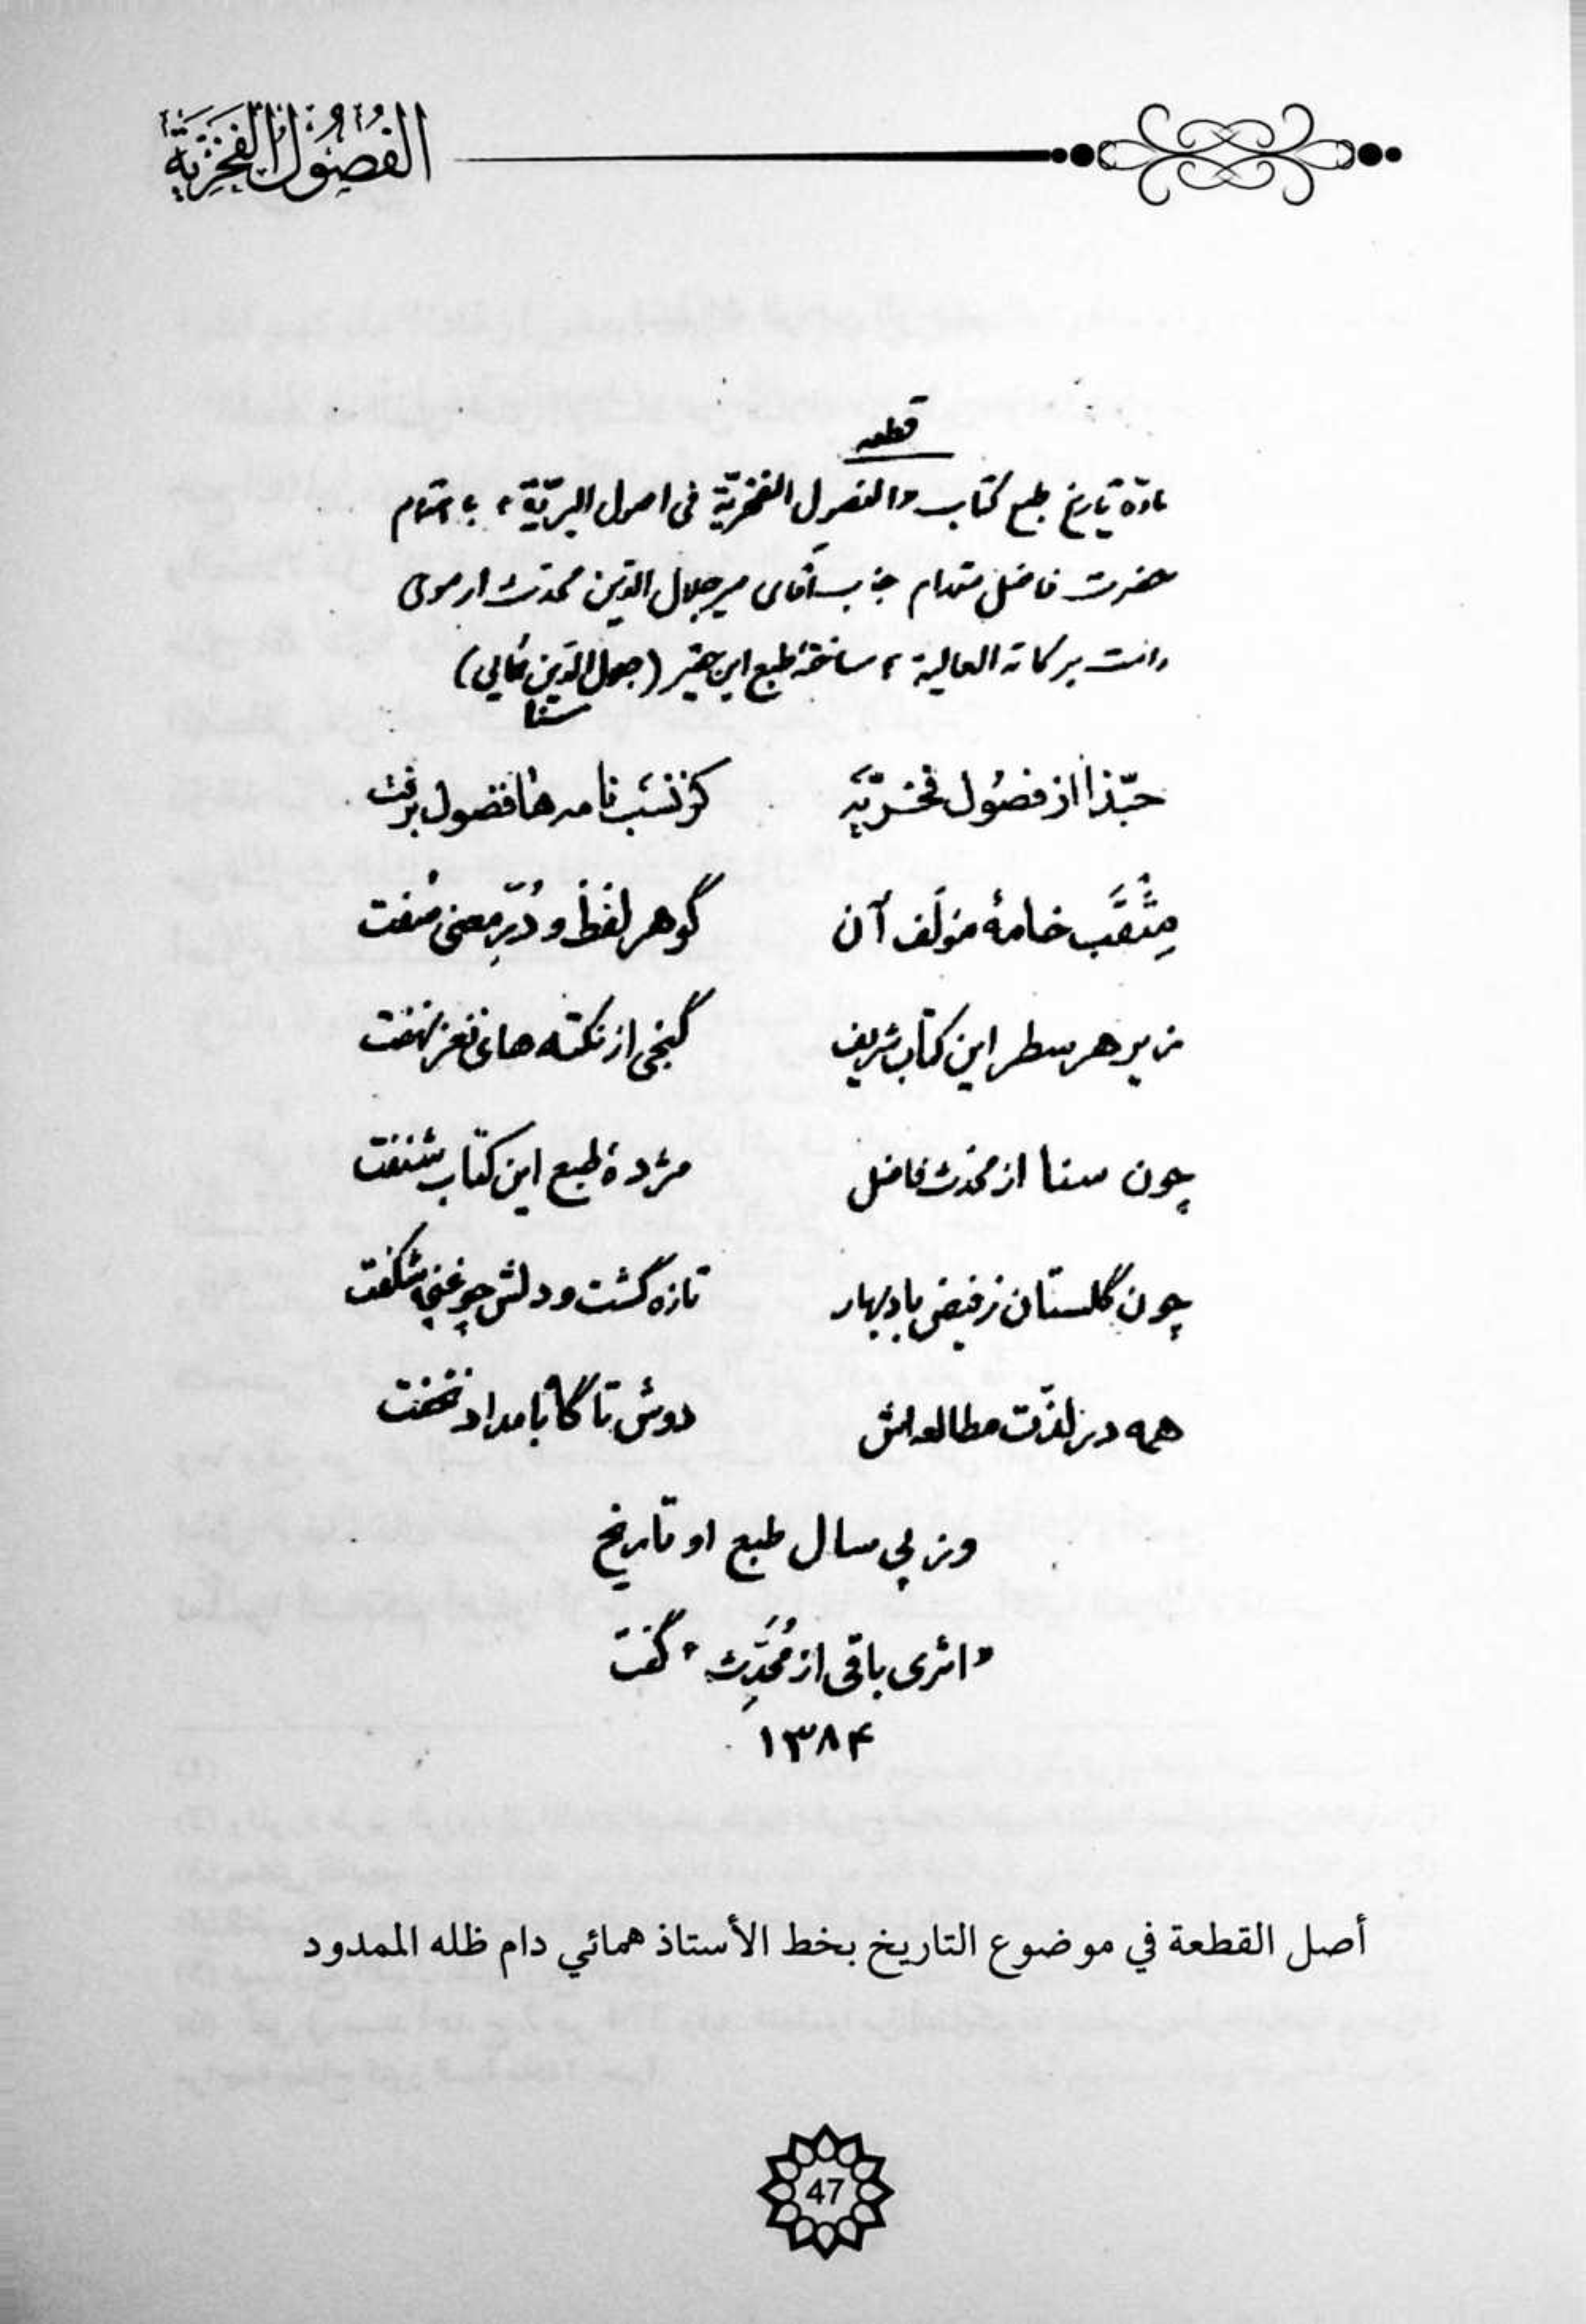 الفُصُولُ الفَخْرِيَّةُ
قطعه
مادّه تاریخ طبع کتاب «الفصول الفخریّة فی اصول البریّة» باهتمام
حضرت فاضل مقدام جناب آقای میر جلال الدّین محدّث ارموی
دامت برکاته العالیة، ساختهٔ طبع این حقیر (جلال الدّین همایی)
سنا
حبّذا از فصُول فخریّه کز نسَب نامه‌ها فضول برُفت
مِثقَب خامهٔ مؤلّف آن گوهر لفظ و دُرِّ معنی سُفت
زیر هر سطر این کتاب شریف گنجی از نکته‌های نغز نهفت
چون سنا از محدّث فاضل مژدهٔ طبع این کتاب شنفت
چون گلستان ز فیض باد بهار تازه گشت و دلش چو غنچه شکفت
همه در لذّت مطالعه‌اش دوش تا گاه بامداد نخفت
وز پی سال طبع او تاریخ
«اثری باقی از مُحَدِّث» گفت
۱۳۸۴
أصل القطعة في موضوع التاريخ بخط الأستاذ همائي دام ظله الممدود
47